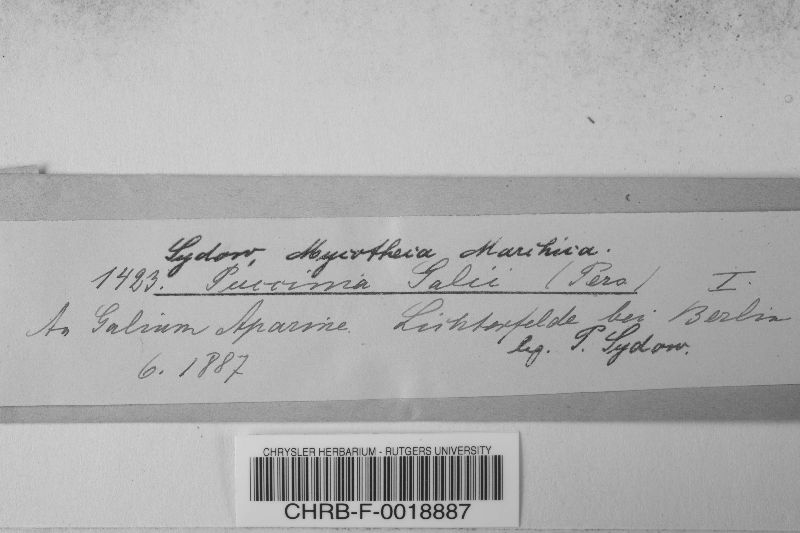 Sydow, Mycotheca Marchica.
1423. Puccinia Galii (Pers) I.
An Galium Aparine. Lichterfelde bei Berlin
6. 1887 leg. P. Sydow.
CHRYSLER HERBARIUM - RUTGERS UNIVERSITY
CHRB-F-0018887